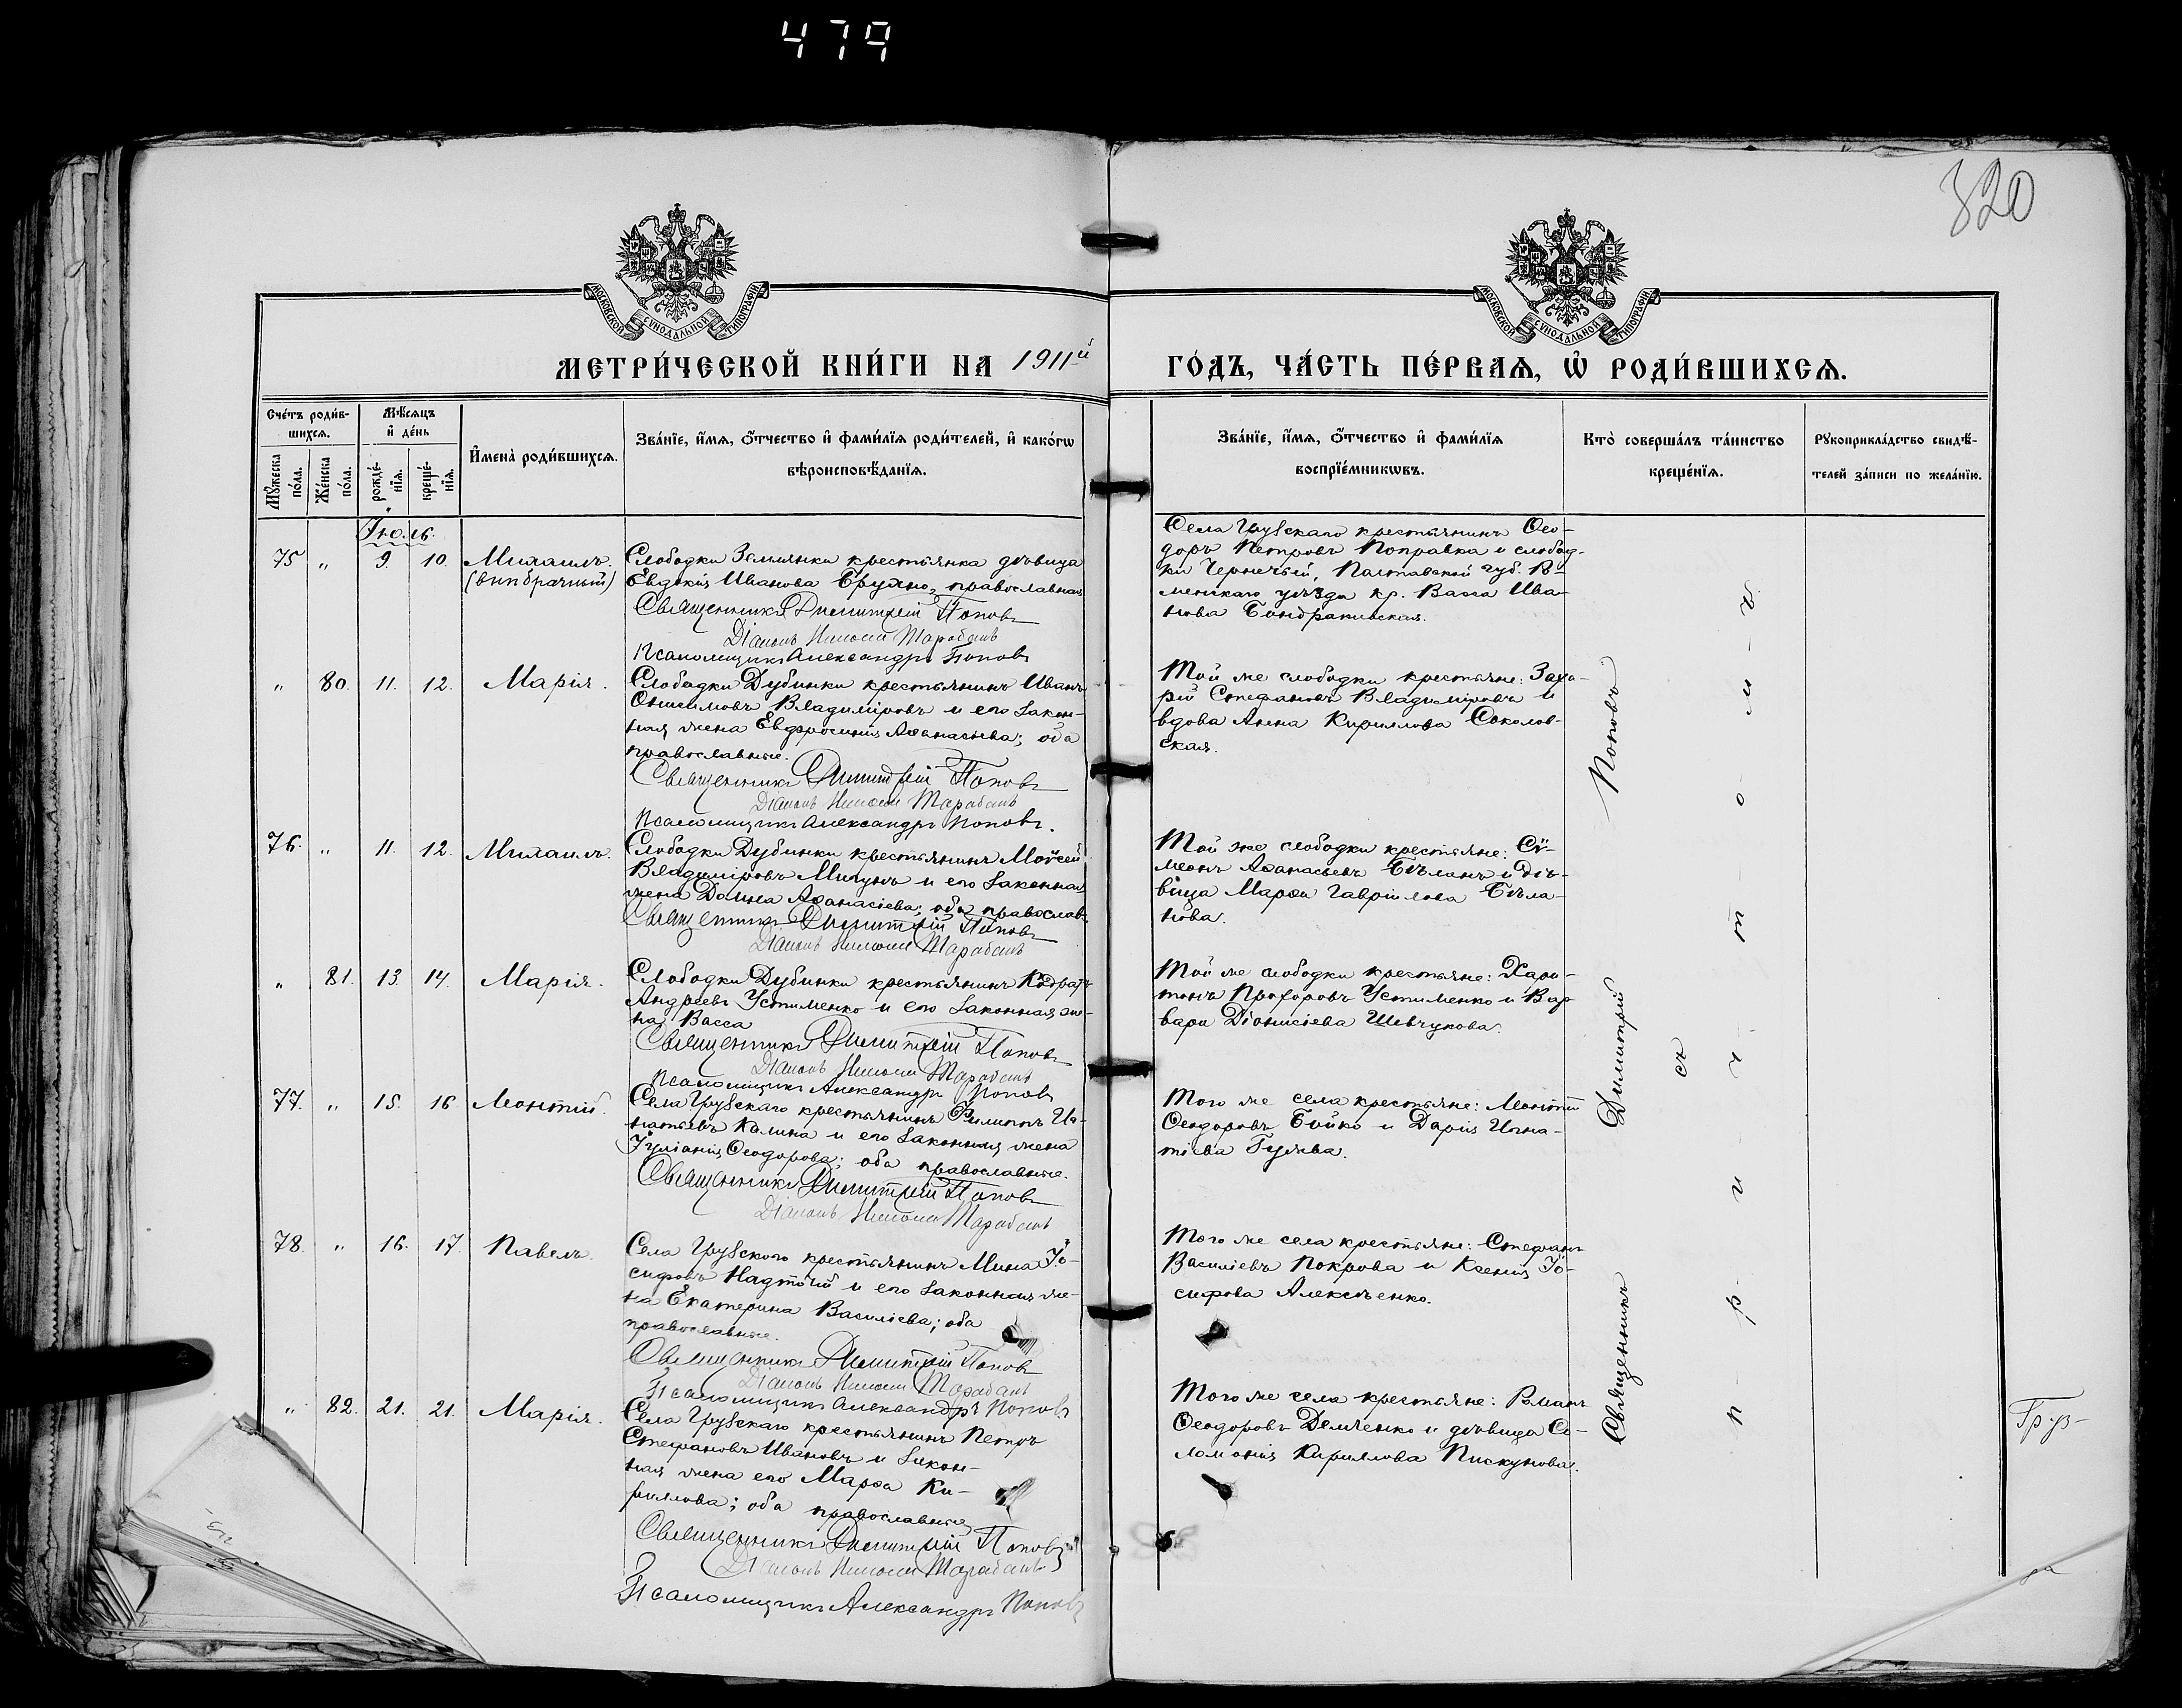 479
320
МОСКОВСКОЙ СѴНОДАЛЬНОЙ ТИПОГРАФІИ
МОСКОВСКОЙ СѴНОДАЛЬНОЙ ТИПОГРАФІИ
МЕТРИ́ЧЕСКОЙ КНИ́ГИ НА 1911й
ГО́ДЪ, ЧА́СТЬ ПЕ́РВАѦ, Ѡ҆ РОДИ́ВШИХСѦ.
Сче́тъ роди́в-
шихсѧ.
Мꙋ́жеска по́ла.
Же́нска по́ла.
Мѣ́сѧцъ
и҆ де́нь
рожде́-
нїѧ.
креще́-
нїѧ.
И҆мена̀ роди́вшихсѧ.
Зва́нїе, и҆́мѧ, ѻ҆́тчество и҆ фами́лїѧ роди́телей, и҆ како́гѡ
вѣроисповѣ́данїѧ.
Зва́нїе, и҆́мѧ, ѻ҆́тчество и҆ фами́лїѧ
воспрїе́мникѡвъ.
Кто̀ соверша́лъ та́инство
креще́нїѧ.
Рꙋкоприкла́дство свидѣ́-
телей за́писи по жела́нїю.
Іюль.
75 " 9. 10. Михаилъ.
(внѣбрачный)
Слободки Землянки крестьянка дѣвица
Евдокія Иванова православная
Священникъ Димитрій Поповъ
Діаконъ Марабанъ
Псаломщикъ Александръ Поповъ
Села Грузскаго крестьянинъ Ѳео-
доръ Петровъ Поправка и слобод-
ки Полтавской губ. Ро-
менскаго уѣзда кр. Васса Ива-
нова
" 80. 11. 12. Марія.
Слободки Дубинки крестьянинъ Иванъ
Онисимовъ Владиміровъ и его закон-
ная жена Евфросинія Аѳанасьева; оба
православные.
Священникъ Димитрій Поповъ
Діаконъ Марабанъ
Псаломщикъ Александръ Поповъ.
Той же слободки крестьяне: Заха-
рій Стефановъ Владиміровъ и
вдова Анна Кириллова Соколов-
ская.
76. " 11. 12. Михаилъ.
Слободки Дубинки крестьянинъ Моѵсей
Владиміровъ Мигунъ и его законная
жена Домна Аѳанасіева; оба православ.
Священникъ Димитрій Поповъ
Діаконъ Марабанъ
Той же слободки крестьяне: Сѵ-
меонъ Аѳанасьевъ Бѣланъ и дѣ-
вица Марѳа Гавріилова Бѣла-
нова.
" 81. 13. 14. Марія.
Слободки Дубинки крестьянинъ Кодратъ
Андреевъ Устименко и его законная же-
на Васса
Священникъ Димитрій Поповъ
Діаконъ Марабанъ
Псаломщикъ Александръ Поповъ
Той же слободки крестьяне: Хари-
тонъ Прохоровъ Устименко и Вар-
вара Діонисіева Шевчукова.
77. " 15. 16 Леонтій.
Села Грузскаго крестьянинъ Филиппъ Иг-
натьевъ Калина и его законная жена
Іуліанія Ѳеодорова; оба православные.
Священникъ Димитрій Поповъ
Діаконъ Марабанъ
Того же села крестьяне: Леонтій
Ѳеодоровъ Бойко и Дарія Игна-
тіева Гуляева.
78. " 16. 17. Павелъ.
Села Грузскаго крестьянинъ Мина Іо-
сифовъ Надточій и его законная же-
на Екатерина Василіева; оба
православные.
Священникъ Димитрій Поповъ
Діаконъ Марабанъ
Псаломщикъ Александръ Поповъ
Того же села крестьяне: Стефанъ
Василіевъ Покрова и Ксенія Іо-
сифова Алексѣенко.
" 82. 21. 21. Марія.
Села Грузскаго крестьянинъ Петръ
Стефановъ Ивановъ и закон-
ная жена его Марѳа Ки-
риллова; оба православные
Священникъ Димитрій Поповъ
Діаконъ Марабанъ
Псаломщикъ Александръ Поповъ
Того же села крестьяне: Романъ
Ѳеодоровъ Демченко и дѣвица Со-
ломонія Кириллова Пискунова.
Священникъ Димитрій Поповъ
съ
п-р-и-ч-т-о-м-ъ